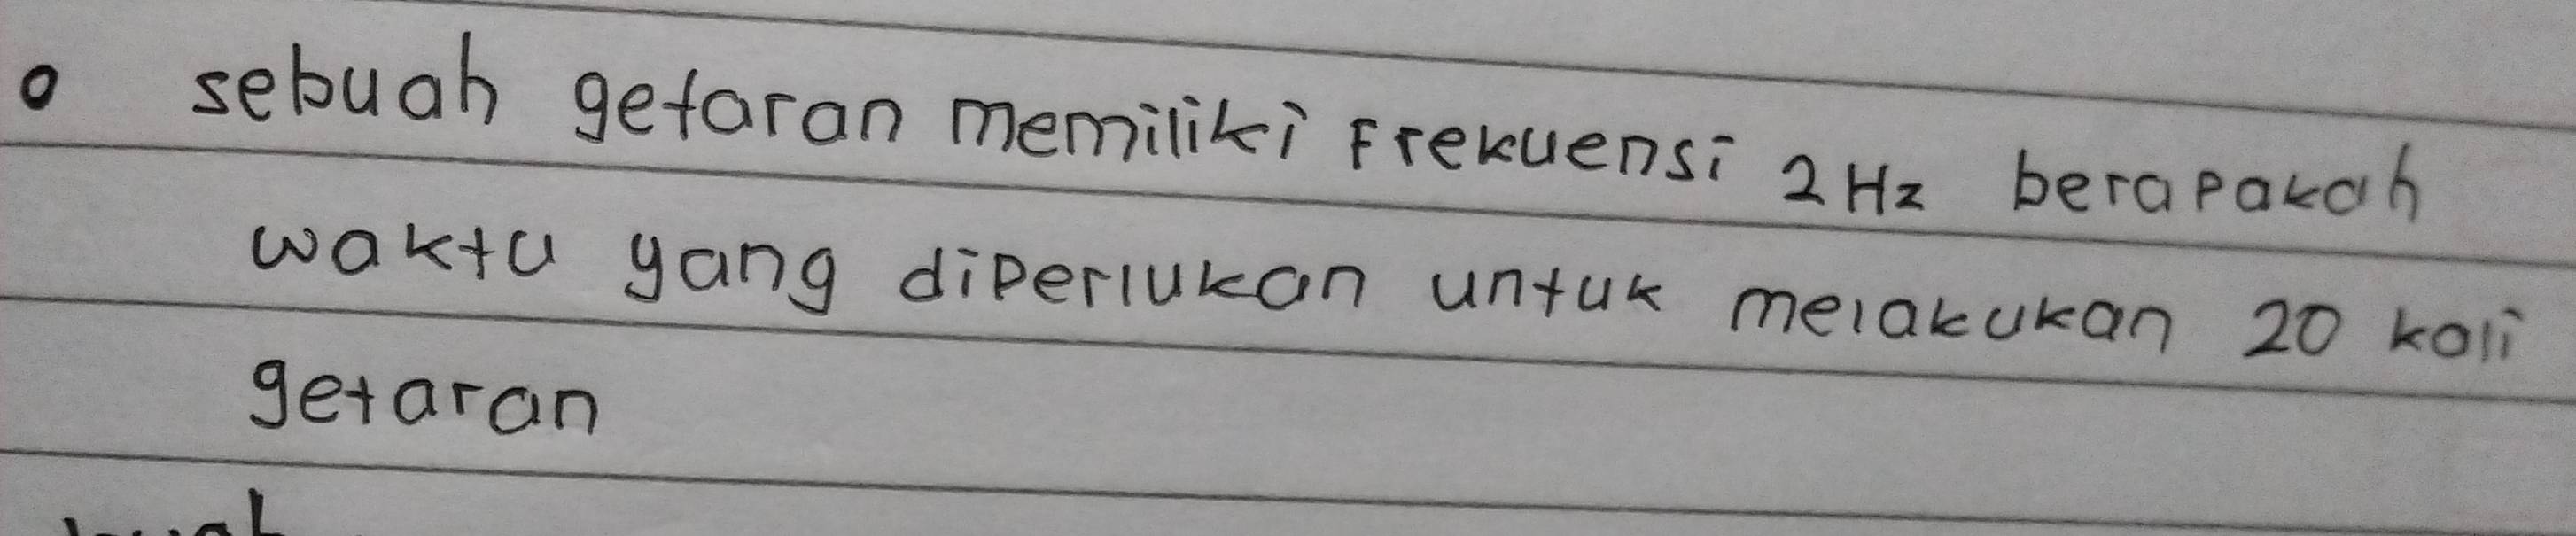 o sebuah getaran memiliki Frekuensi 2 Hz berapakah
waktu yang diperlukan untuk melakukan 20 kali
getaran